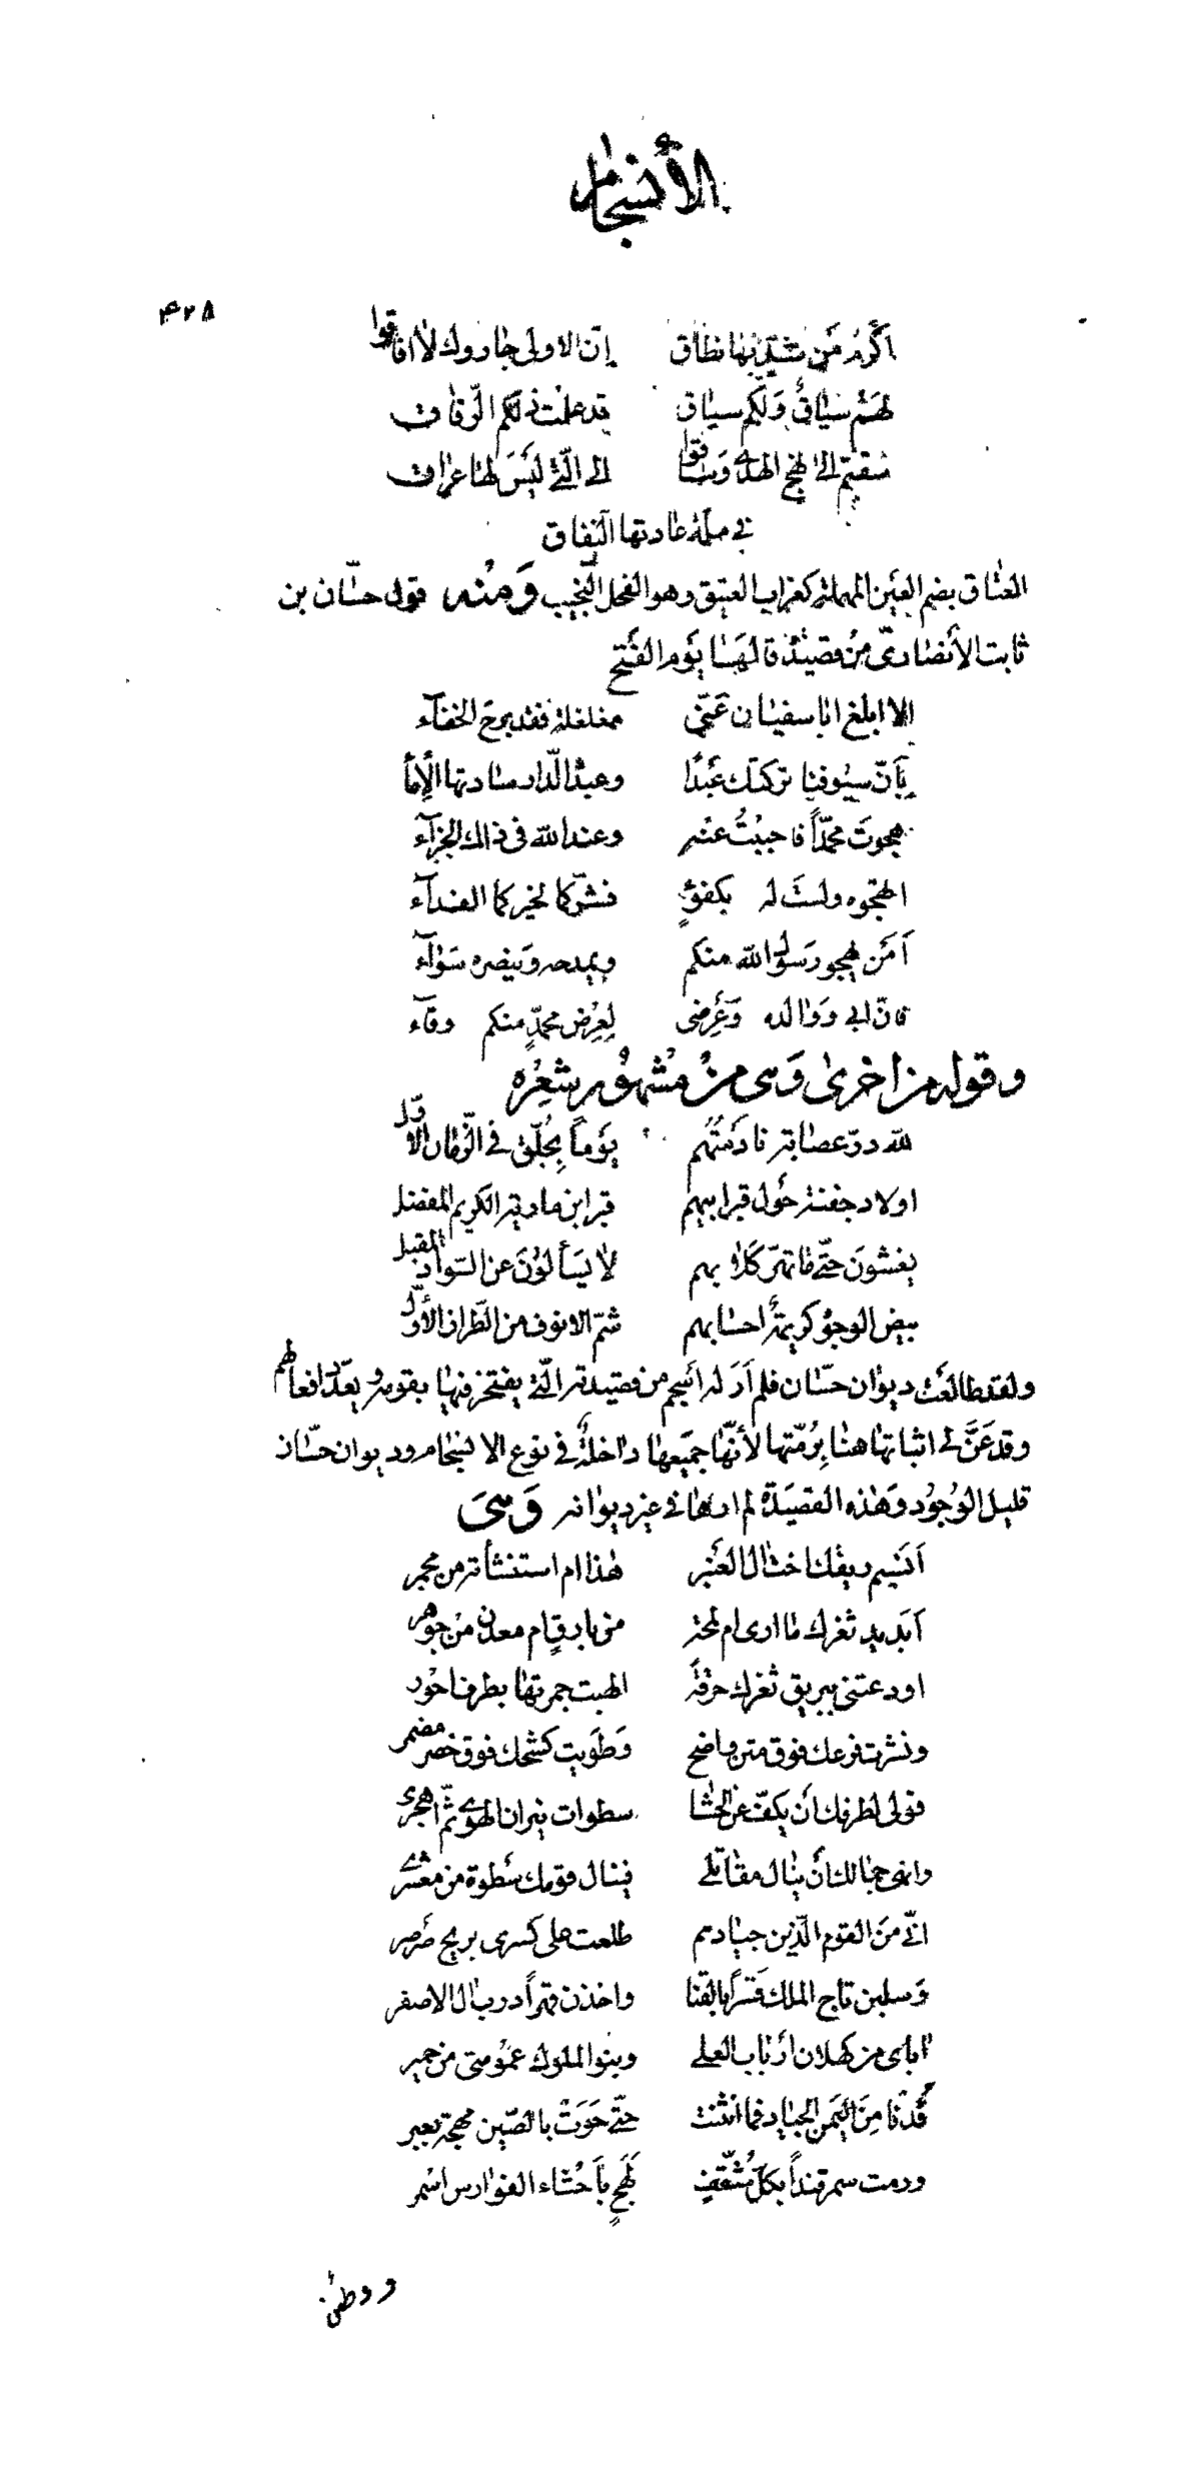 الأنسجام
٤٢٨
أكرم من شد بها نطاق إن الاولى جاروك لا افاقوا
لهم سياق ولكم سياق قد علمت ذلكم الرفاق
سقتم الى نهج الهدى وساقوا الى الّتي ليس لها عراق
في ملة عادتها النفاق
العتاق بضم العين المهملة كغراب العتيق وهو الفحل النجيب وَمنْه قول حسّان بن
ثابت الأنصاريّ من قصيدة قالها يوم الفتح
الا ابلغ ابا سفيان عنّي مغلغلة فقد برح الخفآء
بأنّ سيوفنا تركتك عبدًا وعبد الدّار سادتها الإمآ
هجوت محمّداً فاجبْتُ عنه وعند الله في ذاك الجزآء
اتهجوه ولست له بكفؤٍ فشرّكما لخيركما الفدآء
أمن يهجو رسول الله منكم ويمدحه وينصره سوآء
فانّ ابي ووالده وعرضى لِعِرْض محمّدٍ منكم وقآء
وقوله من اخرى وَهى منْ مُشْهوْر شِعْره
لله درّ عصابة نادمتُهم يوماً بجلّق في الزّمان الاوّل
اولاد جفنة حول قبر ابيهم قبر ابن مارية الكريم المفضل
يغشون حتّى ما تهرّ كلابهم لا يسألون عن السّواد المقبل
بيض الوجوه كريمةٌ احسابهم شمّ الانوف من الطّراز الأوّل
ولقد طالعت ديوان حسّان فلم أر له أنسجم من قصيدته الّتي يفتخر فيها بقومه ويعدّد افعالهم
وقد عَنَّ لى اثباتها هنا بِرُمّتها لأنّها جميعها داخلةٌ في نوع الانسجام وديوان حسّان
قليل الوُجُود وهذه القصيدة لم ارها في غير ديوانه وَهىَ
أنسيم ريقك اخت ال العنبر هذا ام استنشأته من مجمر
أبديد ثغرك ما ارى ام لمحة من بارقٍ ام معدن من جوهر
اودعتني ببريق ثغرك حرقةً الهبت جمرتها بطرف احور
ونشرت فرعك فوق متن واضح وَطويت كشحك فوق خصر مضمر
قولى لطرفك أن يكفّ عن الحشا سطوات نيران الهوى ثمّ اهجرى
وانهى جمالك أن ينال مقاتلى فينال قومك سطوة من معشرى
انّي من القوم الّذين جيادهم طلعت على كسرى بريح صرصر
وسلبن تاج الملك قسراً بالقنا واخذن قهراً درب ال الاصفر
اباى من كهلان أرباب العلى وبنوا الملوك عمومتى من حمير
قُدْنا مِنَ اليمن الجياد فما انثنت حتّى حَوَتْ بالصّين مهجة يعبر
ورمت سمرقنداً بكلّ مثقّفٍ لَهِجٍ بأحشاء الفوارس اسمر
ووطئن